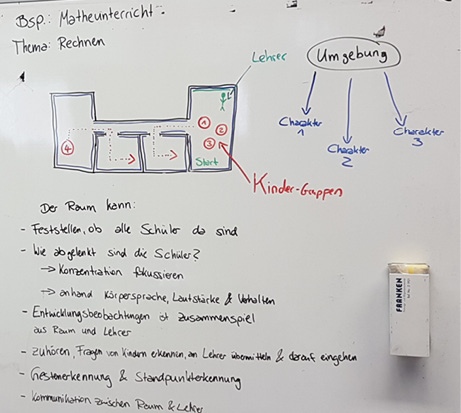 Bsp.: Matheunterricht
Thema: Rechnen
Lehrer
Umgebung
Charakter
1
Charakter
2
Charakter
3
1
2
3
4
Start
Kinder-Gruppen
Der Raum kann:
- Feststellen, ob alle Schüler da sind
- Wie abgelenkt sind die Schüler?
→ Konzentration fokussieren
→ anhand Körpersprache, Lautstärke & Verhalten
- Entwicklungsbeobachtungen ist zusammenspiel
aus Raum und Lehrer
- zuhören, Fragen von Kindern erkennen, an Lehrer übermitteln & darauf eingehen
- Gestenerkennung & Standpunkterkennung
- Kommunikation zwischen Raum & Lehrer
FRANKEN